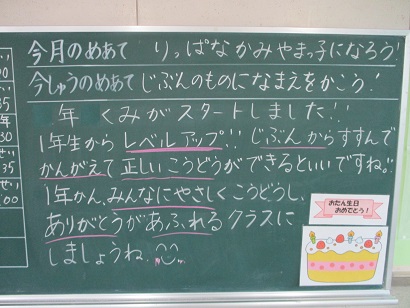 今月のめあて りっぱなかみやまっ子になろう!
今しゅうのめあて じぶんのものになまえをかこう!
年 くみがスタートしました!!
1年生からレベルアップ!! じぶんからすすんで
かんがえて正しいこうどうができるといいですね。
1年かん、みんなにやさしくこうどうし、
ありがとうがあふれるクラスに
しましょうね。
おたん生日
おめでとう!